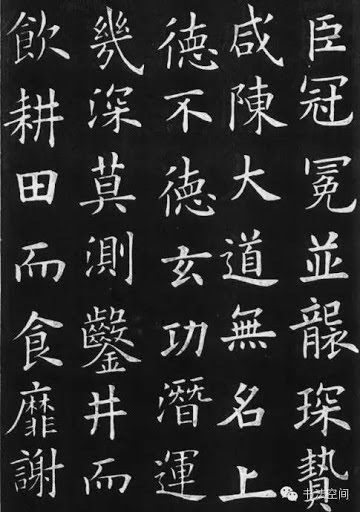 臣冠冕並襲琛贄
咸陳大道無名上
德不德玄功潛運
幾深莫測鑿井而
飲耕田而食靡謝
书法空间